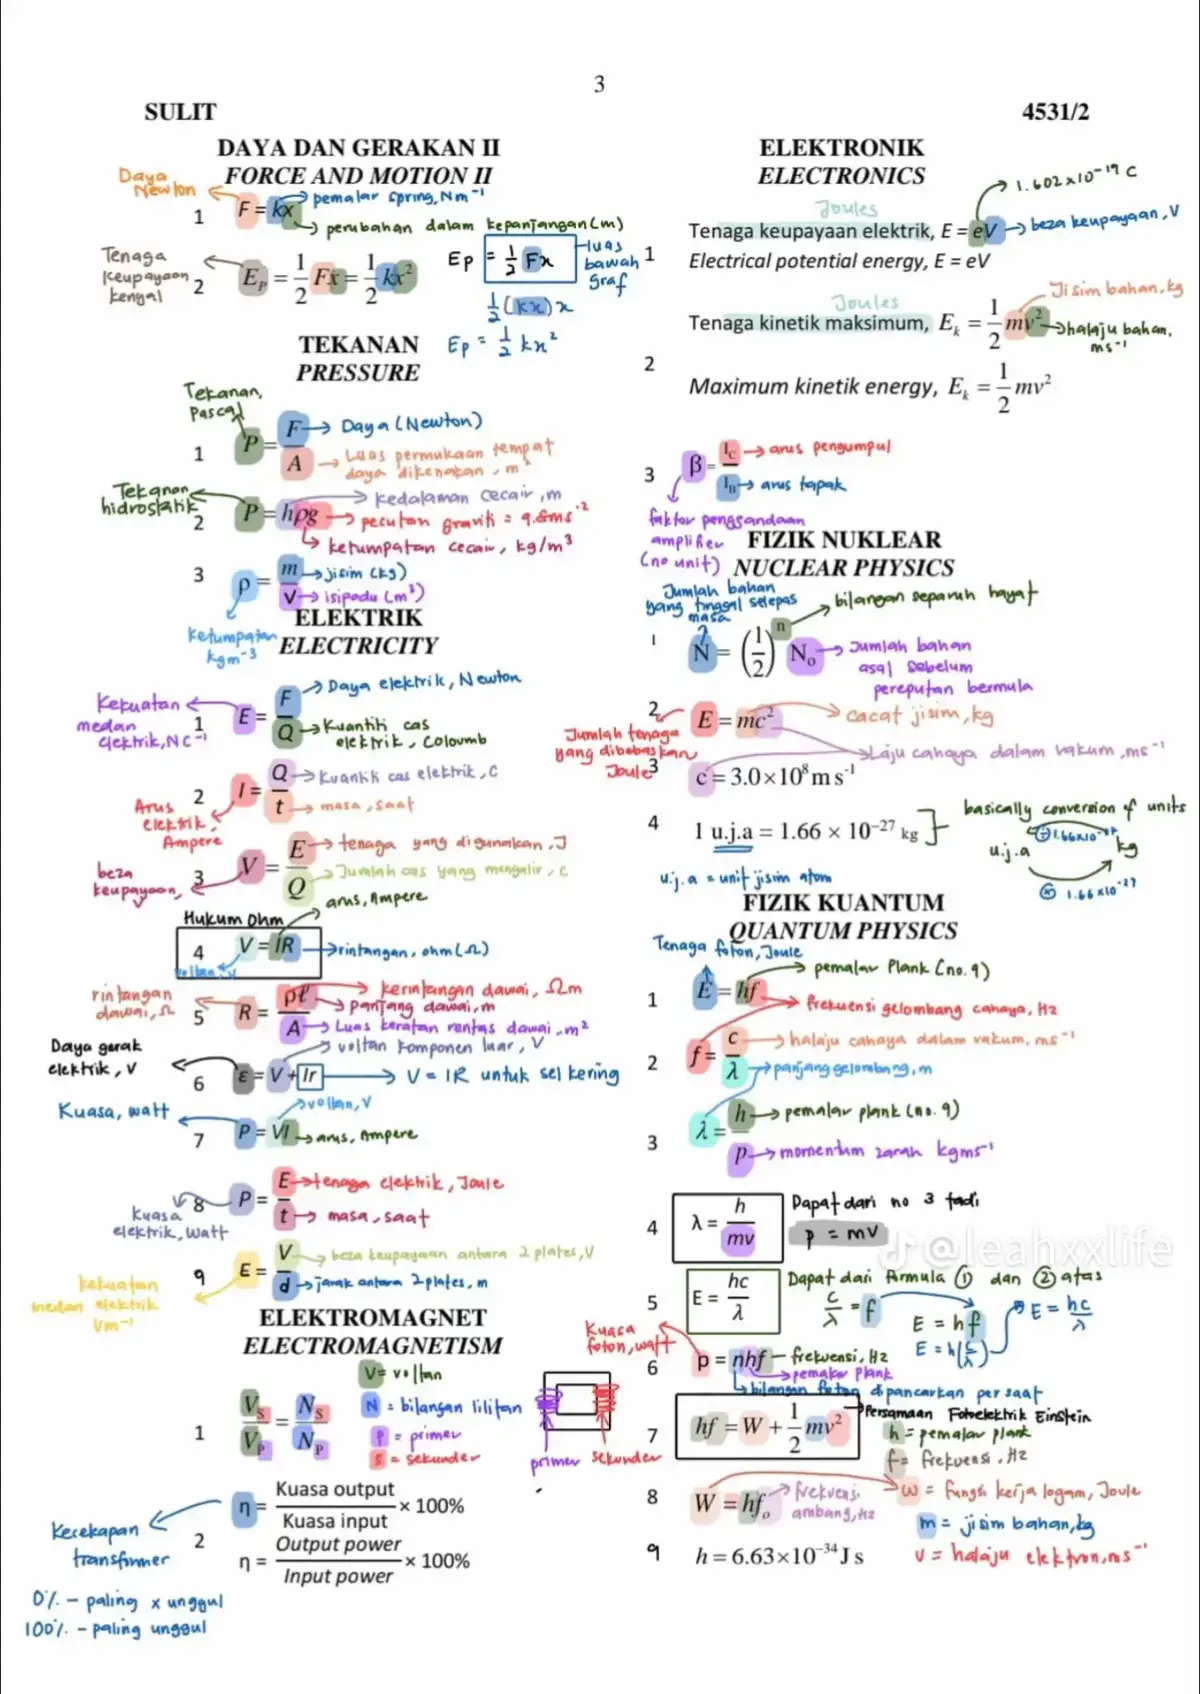 3
SULIT
4531/2
DAYA DAN GERAKAN II
FORCE AND MOTION II
Daya
Newton
1 F = kx
pemalar spring, Nm⁻¹
perubahan dalam kepanjangan (m)
Tenaga
Keupayaan
kenyal
2 Eₚ = 1/2 Fx = 1/2 kx²
Ep = 1/2 Fx
luas
bawah
graf
1/2 (kx) x
Ep = 1/2 kx²
TEKANAN
PRESSURE
Tekanan,
Pascal
1 P = F/A
Daya (Newton)
Luas permukaan tempat
daya dikenakan, m²
Tekanan
hidrostatik
2 P = hρg
kedalaman cecair, m
pecutan graviti = 9.8ms⁻²
ketumpatan cecair, kg/m³
3 ρ = m/V
jisim (kg)
isipadu (m³)
Ketumpatan
kgm⁻³
ELEKTRIK
ELECTRICITY
Kekuatan
medan
elektrik, NC⁻¹
1 E = F/Q
Daya elektrik, Newton
Kuantiti cas
elektrik, Coloumb
2 I = Q/t
Kuantiti cas elektrik, C
masa, saat
Arus
elektrik,
Ampere
3 V = E/Q
tenaga yang digunakan, J
Jumlah cas yang mengalir, C
beza
keupayaan,
Hukum Ohm
4 V = IR
arus, Ampere
rintangan, ohm (Ω)
voltan, V
rintangan
dawai, Ω
5 R = ρℓ/A
kerintangan dawai, Ωm
panjang dawai, m
Luas keratan rentas dawai, m²
Daya gerak
elektrik, V
6 ε = V + Ir
voltan komponen luar, V
V = IR untuk sel kering
Kuasa, watt
7 P = VI
voltan, V
arus, Ampere
8 P = E/t
tenaga elektrik, Joule
masa, saat
Kuasa
elektrik, Watt
9 E = V/d
beza keupayaan antara 2 plates, V
jarak antara 2 plates, m
kekuatan
medan elektrik
Vm⁻¹
ELEKTROMAGNET
ELECTROMAGNETISM
1 Vs/Vp = Ns/Np
V = voltan
N = bilangan lilitan
p = primer
s = sekunder
primer
sekunder
2 η = Kuasa output/Kuasa input × 100%
η = Output power/Input power × 100%
Kecekapan
transfrmer
0% - paling x unggul
100% - paling unggul
ELEKTRONIK
ELECTRONICS
1.602x10⁻¹⁹ C
Joules
1 Tenaga keupayaan elektrik, E = eV
beza keupayaan, V
Electrical potential energy, E = eV
Joules
Jisim bahan, kg
2 Tenaga kinetik maksimum, Eₖ = 1/2 mv²
halaju bahan,
ms⁻¹
Maximum kinetic energy, Eₖ = 1/2 mv²
3 β = I_C/I_B
arus pengumpul
arus tapak
faktor penggandaan
amplifier
(no unit)
FIZIK NUKLEAR
NUCLEAR PHYSICS
Jumlah bahan
yang tinggal selepas
masa
1 N = (1/2)ⁿ N₀
bilangan separuh hayat
Jumlah bahan
asal sebelum
pereputan bermula
2 E = mc²
cacat jisim, kg
Laju cahaya dalam vakum, ms⁻¹
Jumlah tenaga
yang dibebaskan
Joule
3 c = 3.0 × 10⁸ m s⁻¹
4 1 u.j.a = 1.66 × 10⁻²⁷ kg
basically conversion of units
÷ 1.66x10⁻²⁷
u.j.a kg
× 1.66x10⁻²⁷
u.j.a = unit jisim atom
FIZIK KUANTUM
QUANTUM PHYSICS
Tenaga foton, Joule
1 E = hf
pemalar Plank (no. 9)
frekuensi gelombang cahaya, Hz
2 f = c/λ
halaju cahaya dalam vakum, ms⁻¹
panjang gelombang, m
3 λ = h/p
pemalar plank (no. 9)
momentum zarah kgms⁻¹
4 λ = h/mv
Dapat dari no 3 tadi
p = mv
@leahxxlife
5 E = hc/λ
Dapat dari formula ① dan ② atas
c/λ = f
E = hf
E = h(c/λ)
E = hc/λ
Kuasa
foton, watt
6 p = nhf
frekuensi, Hz
pemalar plank
bilangan foton dipancarkan per saat
7 hf = W + 1/2 mv²
Persamaan Fotoelektrik Einstein
h = pemalar plank
f = frekuensi, Hz
8 W = hf₀
frekuensi
ambang, Hz
w = fungsi kerja logam, Joule
m = jisim bahan, kg
v = halaju elektron, ms⁻¹
9 h = 6.63 × 10⁻³⁴ J s